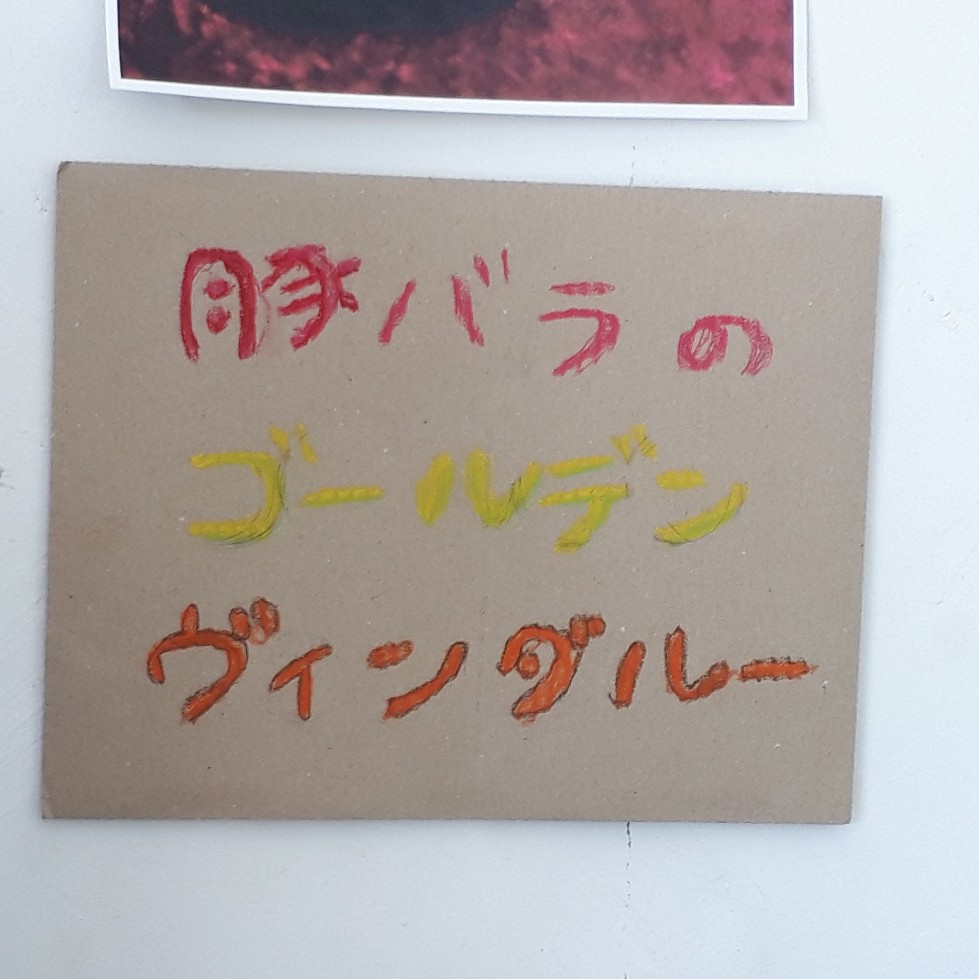 豚バラの
ゴールデン
ヴィンダルー